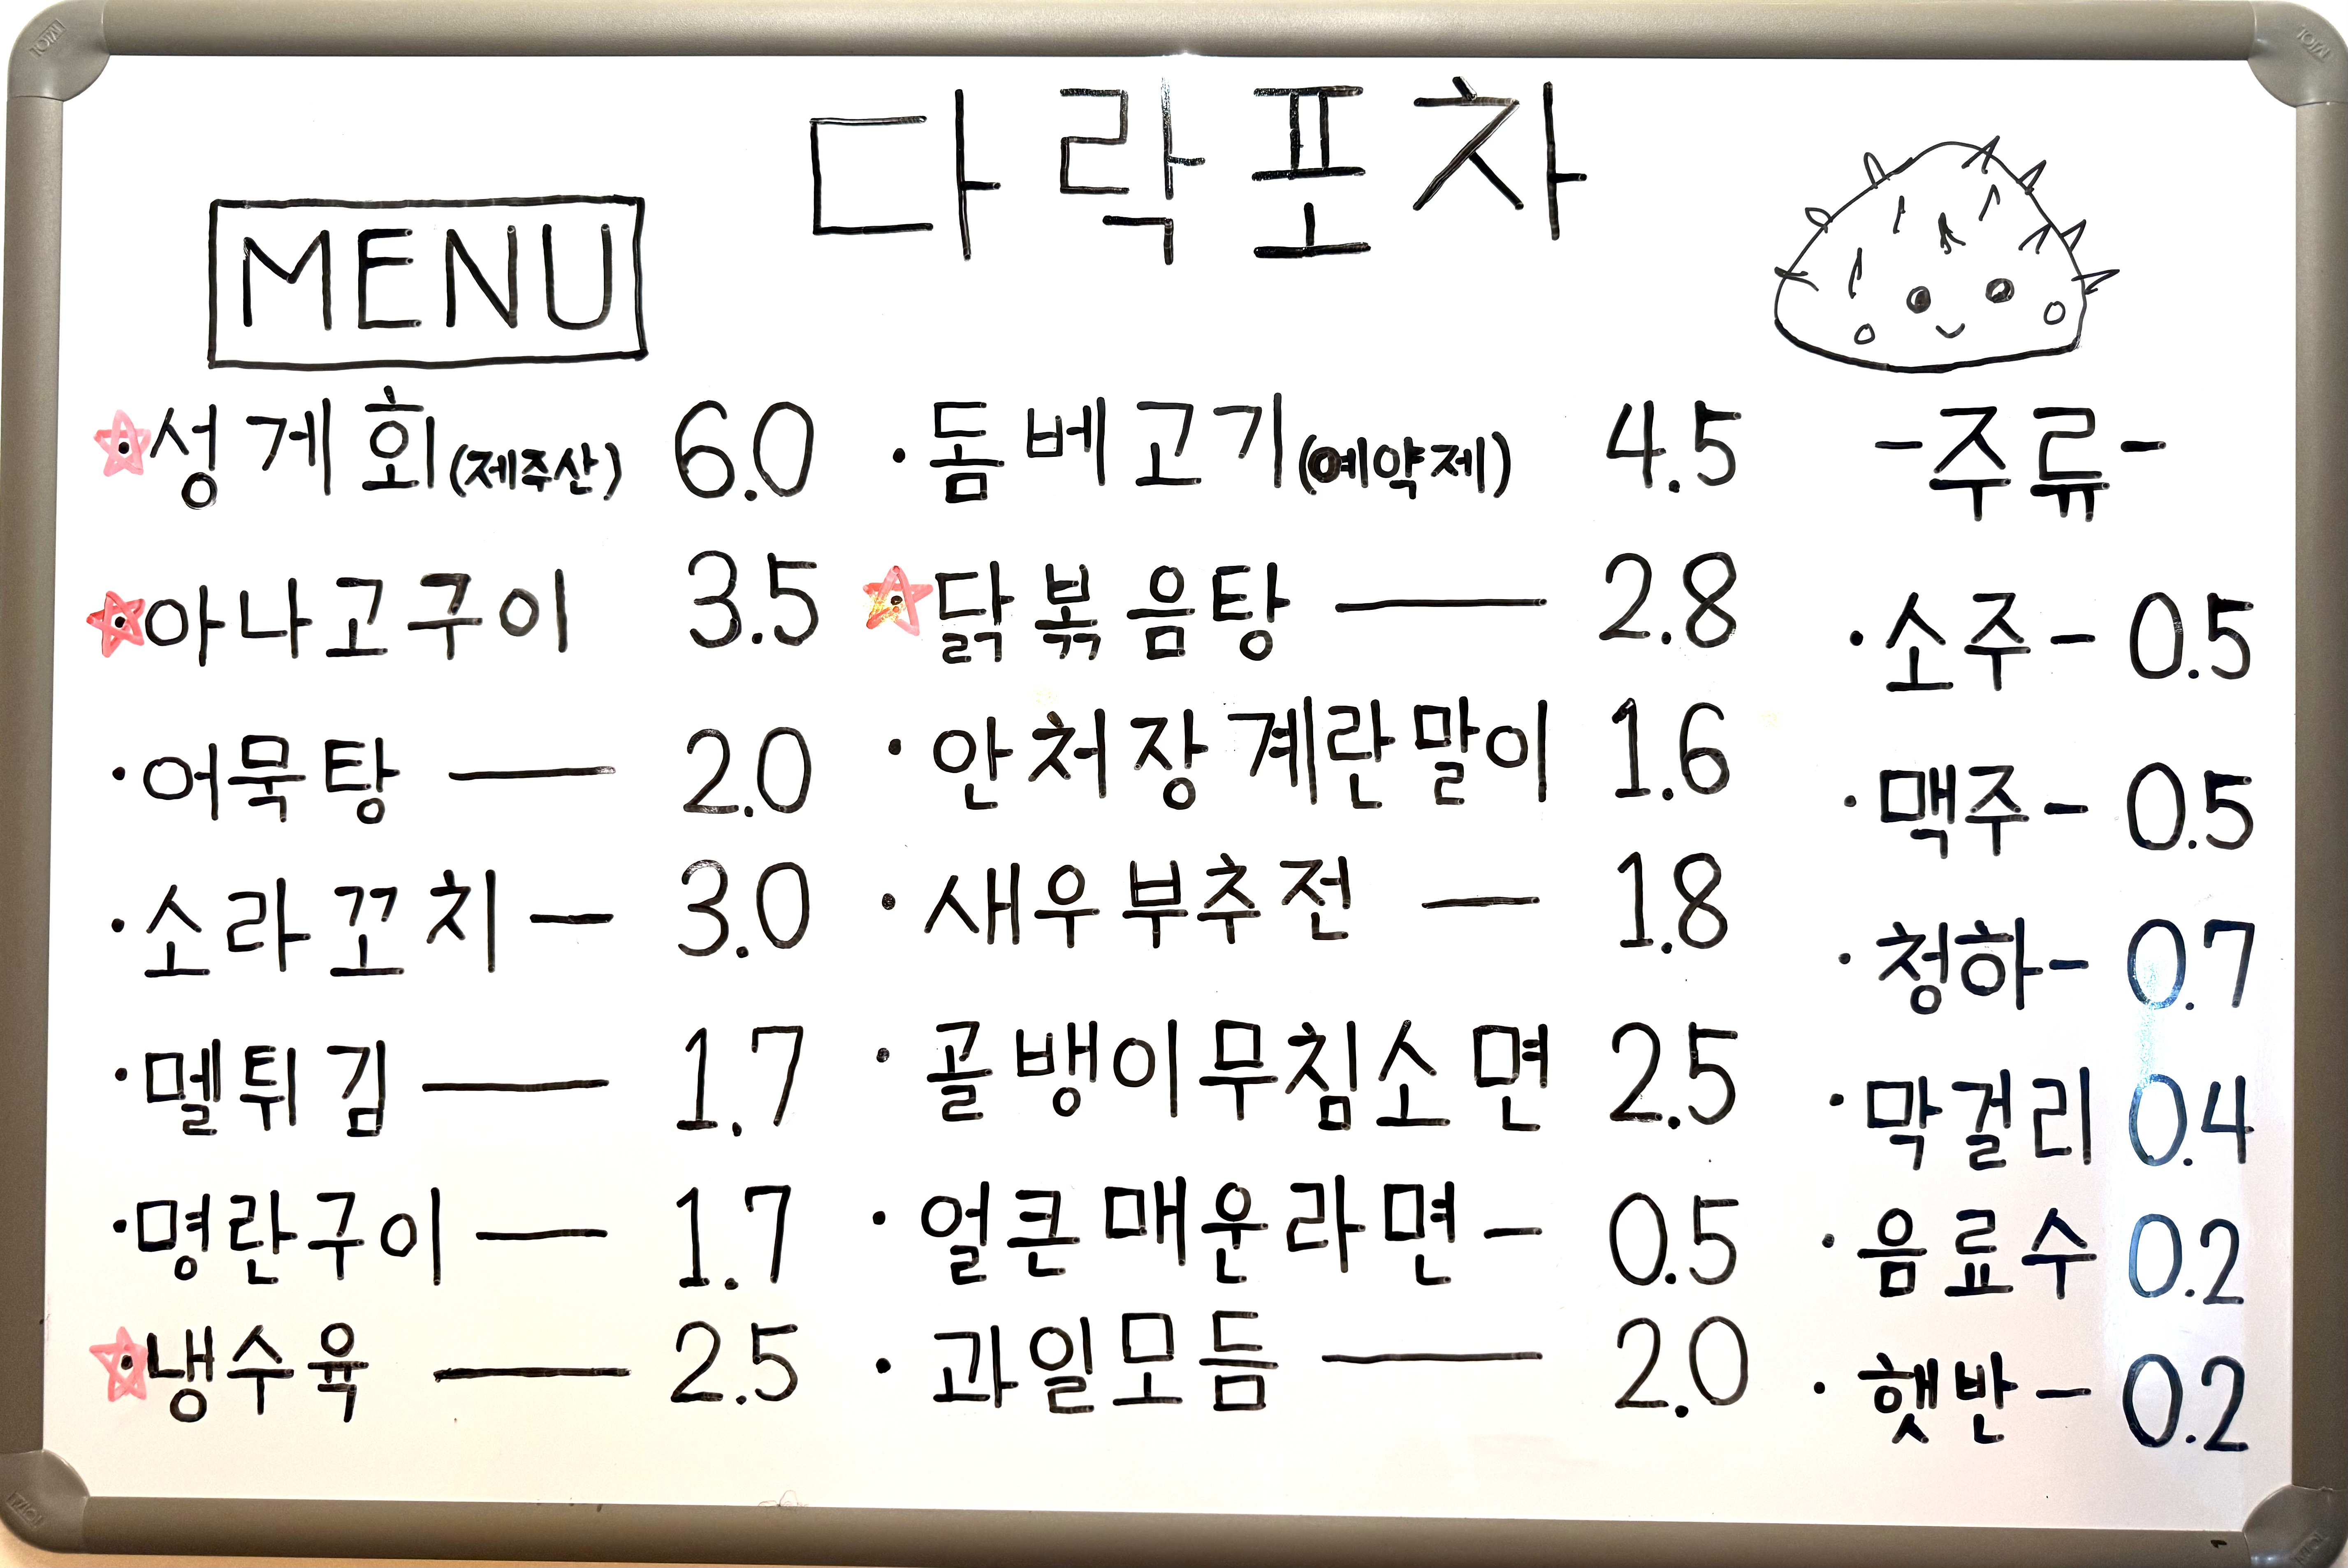 다락포차
MENU
성게회(제주산) 6.0
아나고구이 3.5
·어묵탕 — 2.0
·소라꼬치 — 3.0
·멜튀김 — 1.7
·명란구이 — 1.7
냉수육 — 2.5
·돔베고기(예약제) 4.5
닭볶음탕 — 2.8
·안처장계란말이 1.6
·새우부추전 — 1.8
·골뱅이무침소면 2.5
·얼큰매운라면 - 0.5
·과일모듬 — 2.0
-주류-
·소주 - 0.5
·맥주 - 0.5
·청하 - 0.7
·막걸리 0.4
·음료수 0.2
·햇반 - 0.2